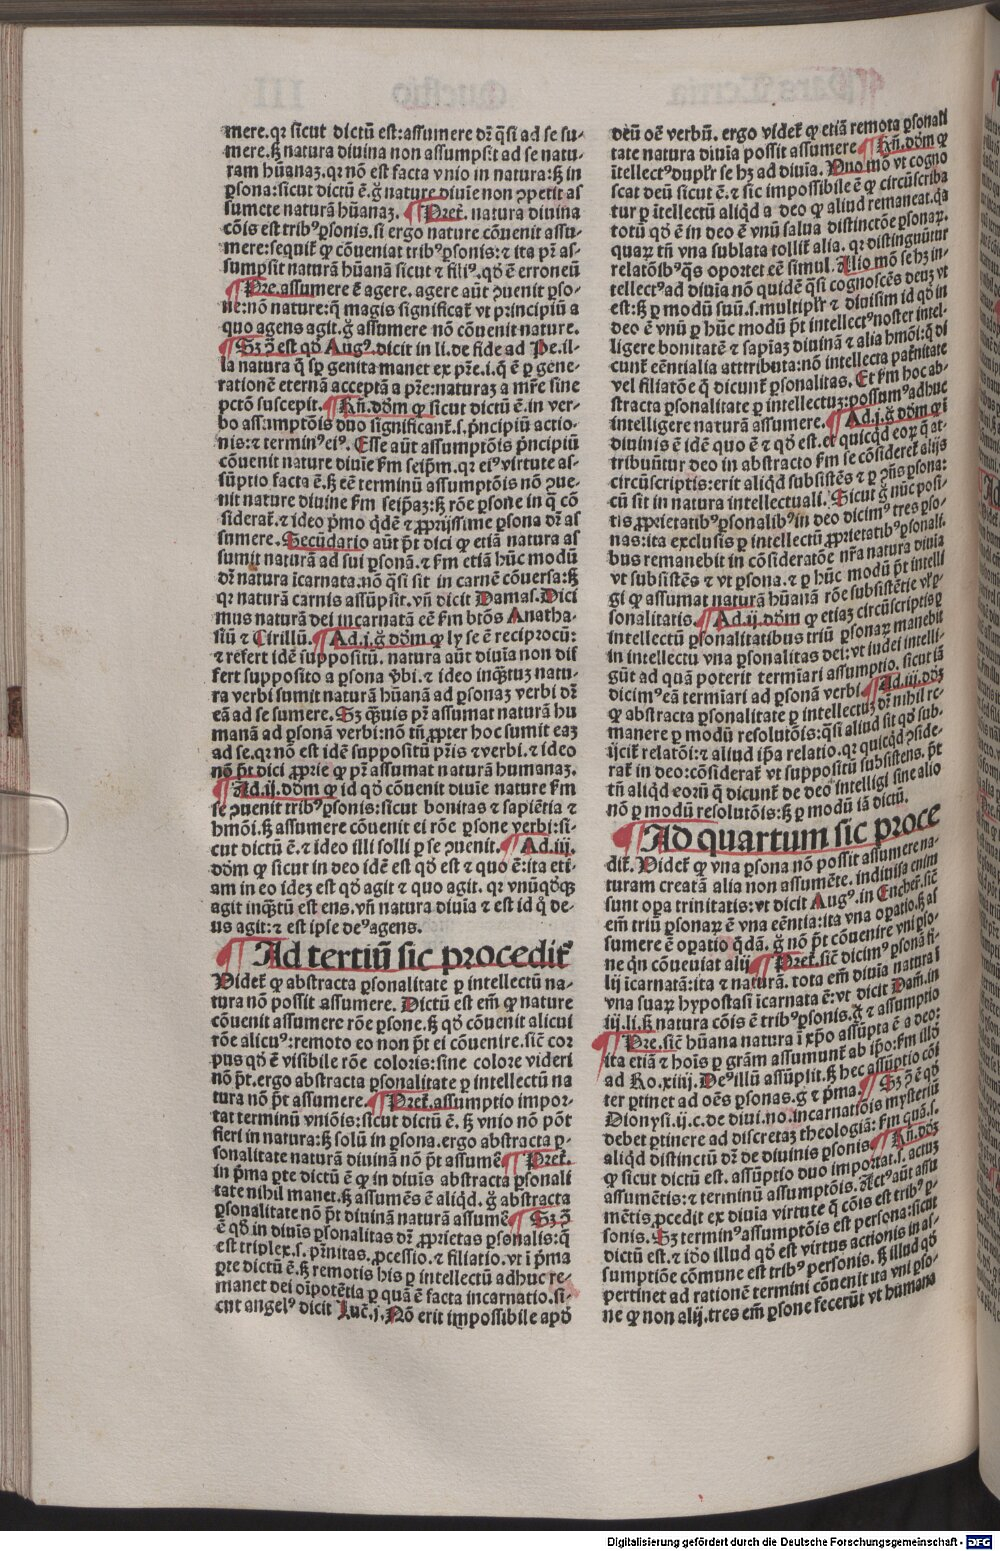 mere.qꝛ sicut dictū est:assumere dꝛ q̄si ad se su-
mere.sꝫ natura diuina non assumpsit ad se natu-
ram hūanaꝫ.qꝛ nō est facta vnio in natura:sꝫ in
ꝑsona:sicut dictū ē.g̊ nature diuīe non ꝯpetit as
sumere naturā hūanaꝫ. ¶Pret̄. natura diuina
cōis est tribꝰ ꝑsonis.si ergo nature cōuenit assu-
mere:sequit̄ ꝙ cōueniat tribꝰ ꝑsonis:⁊ ita pr̄ as-
sumpsit naturā hūanā sicut ⁊ filiꝰ.qd̄ ē erroneū
¶Pre.assumere ē agere. agere aūt ꝯuenit ꝑso-
ne:nō nature:q̄ magis significat̄ vt pꝛincipiū a
quo agens agit.g̊ assumere nō cōuenit nature.
¶Sꝫ ꝯ̄ est qd̄ Augꝰ.dicit in li.de fide ad Pe.il-
la natura q̄ sꝑ genita manet ex pr̄e.i.q̄ ē ꝑ gene-
rationē eternā acceptā a pr̄e:naturaꝫ a mr̄e sine
pctō suscepit.¶Rn̄.dōm ꝙ sicut dictū ē.in ver-
bo assumptōis duo significant̄.s.pꝛincipiū actio-
nis:⁊ terminꝰ eiꝰ. Esse aūt assumptōis pꝛincipiū
cōuenit nature diuīe ẜm seip̄m.qꝛ eiꝰ virtute as-
sūptio facta ē.sꝫ eē terminū assumptōis nō ꝯue-
nit nature diuine ẜm seip̄aꝫ:sꝫ rōe ꝑsone in q̄ cō
siderat̄.⁊ ideo pꝛmo q̄dē ⁊ ꝓprijssime ꝑsona dꝛ as
sumere.Secūdario aūt pt̄ dici ꝙ etiā natura as
sumit naturā ad sui ꝑsonā.⁊ ẜm etiā hūc modū
dꝛ natura īcarnata.nō q̄si sit in carnē cōuersa:sꝫ
qꝛ naturā carnis assūpsit.vn̄ dicit Damas.Dici
mus naturā dei incarnatā eē ẜm btōs Anatha-
siū ⁊ Cirillū.¶Ad.j.g̊ dōm ꝙ ly se ē reciprocū:
⁊ refert idē suppositū. natura aūt diuīa non dif
fert supposito a ꝑsona v̄bi.⁊ ideo inq̄ꝫtuꝫ natu-
ra verbi sumit naturā hūanā ad ꝑsonaꝫ verbi dꝛ
eā ad se sumere.Sꝫ q̄ꝫuis pr̄ assumat naturā hu
manā ad ꝑsonā verbi:nō tn̄ ꝓpter hoc sumit eaꝫ
ad se.qꝛ nō est idē suppositū pr̄is ⁊ verbi.⁊ ideo
nō pt̄ dici ꝓprie ꝙ pr̄ assumat naturā humanaꝫ.
¶Ad.ij.dōm ꝙ id qd̄ cōuenit diuīe nature ẜm
se ꝯuenit tribꝰ ꝑsonis:sicut bonitas ⁊ sapiētia ⁊
hmōi.sꝫ assumere cōuenit ei rōe ꝑsone verbi:si-
cut dictū ē.⁊ ideo illi solli ꝑ se ꝯuenit.¶Ad.iij.
dōm ꝙ sicut in deo idē est qd̄ est ⁊ quo ē:ita eti-
am in eo ideꝫ est qd̄ agit ⁊ quo agit. qꝛ vnūqd̄qꝫ
agit inq̄ꝫtū est ens.vn̄ natura diuīa ⁊ est id q̊ de-
us agit:⁊ est ipse deꝰ agens.
¶Ad tertiū sic procedit̄
Videt̄ ꝙ abstracta ꝑsonalitate ꝑ intellectū na-
tura nō possit assumere. Dictū est em̄ ꝙ nature
cōuenit assumere rōe ꝑsone.sꝫ qd̄ cōuenit alicui
rōe alicuiꝰ:remoto eo non pt̄ ei cōuenire.sic̄ cor
pus qd̄ ē visibile rōe coloris:sine colore videri
nō pt̄.ergo abstracta ꝑsonalitate ꝑ intellectū na
tura nō pt̄ assumere.¶Pret̄.assumptio impor-
tat terminū vniōis:sicut dictū ē. sꝫ vnio nō pōt
fieri in natura:sꝫ solū in ꝑsona.ergo abstracta ꝑ-
sonalitate naturā diuinā nō pt̄ assumē¶Pret̄.
in pꝛma ꝑte dictū ē ꝙ in diuīs abstracta ꝑsonali
tate nihil manet.sꝫ assumēs ē aliqd̄. g̊ abstracta
ꝑsonalitate nō pt̄ diuinā naturā assumē¶Sꝫ ꝯ̄
ē qd̄ in diuīs ꝑsonalitas dꝛ ꝓprietas ꝑsonalis:q̄
est triplex.s.pr̄nitas.ꝓcessio.⁊ filiatio.vt ī pꝛma
ꝑte dictū ē.sꝫ remotis his ꝑ intellectū adhuc re-
manet dei oīpotētia ꝑ quā ē facta incarnatio.si-
cut angelꝰ dicit Luc̄.j.Nō erit impossibile apd̄
deū oē verbū. ergo videt̄ ꝙ etiā remota ꝑsonali
tate natura diuīa possit assumere ¶Rn̄.dōm ꝙ
ītellectꝰ duplr̄ se hꝫ ad diuīa. Vno mō vt cogno
scat deū sicut ē.⁊ sic impossibile ē ꝙ circūscriba
tur ꝑ ītellectū aliqd̄ a deo ꝙ aliud remaneat.qꝛ
totū qd̄ ē in deo ē vnū salua distinctōe ꝑsonaꝝ.
quaꝝ tn̄ vna sublata tollit̄ alia. qꝛ distinguūtur
relatōibꝰ q̄s oportet eē simul.Alio mō se hꝫ in-
tellectꝰ ad diuīa nō quidē q̄si cognoscēs deuꝫ vt
est:sꝫ ꝑ modū suū.s.multiplr̄ ⁊ diuisim id qd̄ in
deo ē vnū ꝑ hūc modū pt̄ intellectꝰ noster intel-
ligere bonitatē ⁊ sapiaꝫ diuinā ⁊ alia hmōi:q̄ di
cunt̄ eēntialia atttributa:nō intellecta pat̄nitate
vel filiatōe q̄ dicunt̄ ꝑsonalitas. Et ẜm hoc ab-
stracta ꝑsonalitate ꝑ intellectuꝫ:possumꝰ adhuc
intelligere naturā assumere.¶Ad.j.g̊ dōm ꝙ ī
diuinis ē idē quo ē ⁊ qd̄ est.et quicqd̄ eoꝝ q̄ at-
tribuūtur deo in abstracto ẜm se cōsideret̄ alijs
circūscriptis:erit aliqd̄ subsistēs ⁊ ꝑ ꝯn̄s ꝑsona:
cū sit in natura intellectuali. Sicut g̊ nūc posi-
tis ꝓprietatibꝰ ꝑsonalibꝰ in deo dicimꝰ tres ꝑso-
nas:ita exclusis ꝑ intellectū ꝓprietatibꝰ ꝑsonali.
bus remanebit in cōsideratōe nr̄a natura diuīa
vt subsistēs ⁊ vt ꝑsona.⁊ ꝑ hūc modū pt̄ intelli
gi ꝙ assumat naturā hūanā rōe subsistētie vl̄ ꝑ-
sonalitatis.¶Ad.ij.dōm ꝙ etiaꝫ circūscriptis ꝑ
intellectū ꝑsonalitatibus triū ꝑsonaꝝ manebit
in intellectu vna ꝑsonalitas dei:vt iudei intelli-
gūt ad quā poterit termīari assumptio. sicut iā
dicimꝰ eā termīari ad ꝑsonā verbi.¶Ad.iij.dōꝫ
ꝙ abstracta ꝑsonalitate ꝑ intellectuꝫ dꝛ nihil re-
manere ꝑ modū resolutōis:q̄si aliud sit qd̄ sub-
ijcit̄ relatōi:⁊ aliud ip̄a relatio.qꝛ quicqd̄ ꝯside-
rat̄ in deo:cōsiderat̄ vt suppositū subsistens. pt̄
tn̄ aliqd̄ eorū q̄ dicunt̄ de deo intelligi sine alio
nō ꝑ modū resolutōis:sꝫ ꝑ modū iā dictū.
¶Ad quartum sic proce
dit̄. Videt̄ ꝙ vna ꝑsona nō possit assumere na-
turam creatā alia non assumēte. indiuisa enim
sunt oꝑa trinitatis:vt dicit Augꝰ.in Encher̄.sic̄
em̄ triū ꝑsonaꝝ ē vna eēntia:ita vna oꝑatio.sꝫ as
sumere ē oꝑatio q̄dā. g̊ nō pt̄ cōuenire vni ꝑso-
ne qn̄ cōueuiat alij ¶Pret̄.sic̄ dicimꝰ ꝑsonā fi-
lij īcarnatā:ita ⁊ naturā. tota em̄ diuīa natura ī
vna suaꝝ hypostasi īcarnata ē:vt dicit Dam̄.in
iij.li.sꝫ natura cōis ē tribꝰ ꝑsonis.g̊ ⁊ assumptio
¶Pre.sic̄ hūana natura ī xp̄o assūpta ē a deo:
ita etiā ⁊ hoīs ꝑ grām assumunt̄ ab ip̄o:ẜm illō
ad Ro.xiiij.Deꝰ illū assūpsit.sꝫ hec assūptio cōi
ter ꝑtinet ad oēs ꝑsonas.g ⁊ pꝛma.¶Sꝫ ꝯ̄ ē qd̄
Dionysi.ij.c.de diui.no.incarnatiōis mysteriū
debet ꝑtinere ad discretaꝫ theologiā:ẜm quā.s.
aliqd̄ distinctū dꝛ de diuinis ꝑsonis.¶Rn̄.dōꝫ
ꝙ sicut dictū est. assūptio duo importat.s. actuꝫ
assumētis:⁊ terminū assumptōis. act̄ꝰ aūt assu
mētis ꝓcedit ex diuīa virtute q̄ cōis est tribꝰ ꝑ-
sonis. Sꝫ terminꝰ assumptōis est persona:sicut
dictū est.⁊ iō illud qd̄ est virtus actionis in as-
sumptiōe cōmune est tribꝰ personis. sꝫ illud qd̄
pertinet ad rationē termini cōuenit ita vni ꝑso-
ne ꝙ non alij.tres em̄ ꝑsone fecerūt vt humana
Digitalisierung gefördert durch die Deutsche Forschungsgemeinschaft - DFG